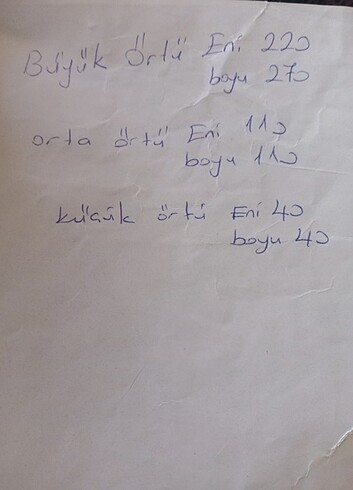 Büyük Örtü Eni 220
boyu 270
orta örtü Eni 110
boyu 110
küçük örtü Eni 40
boyu 40